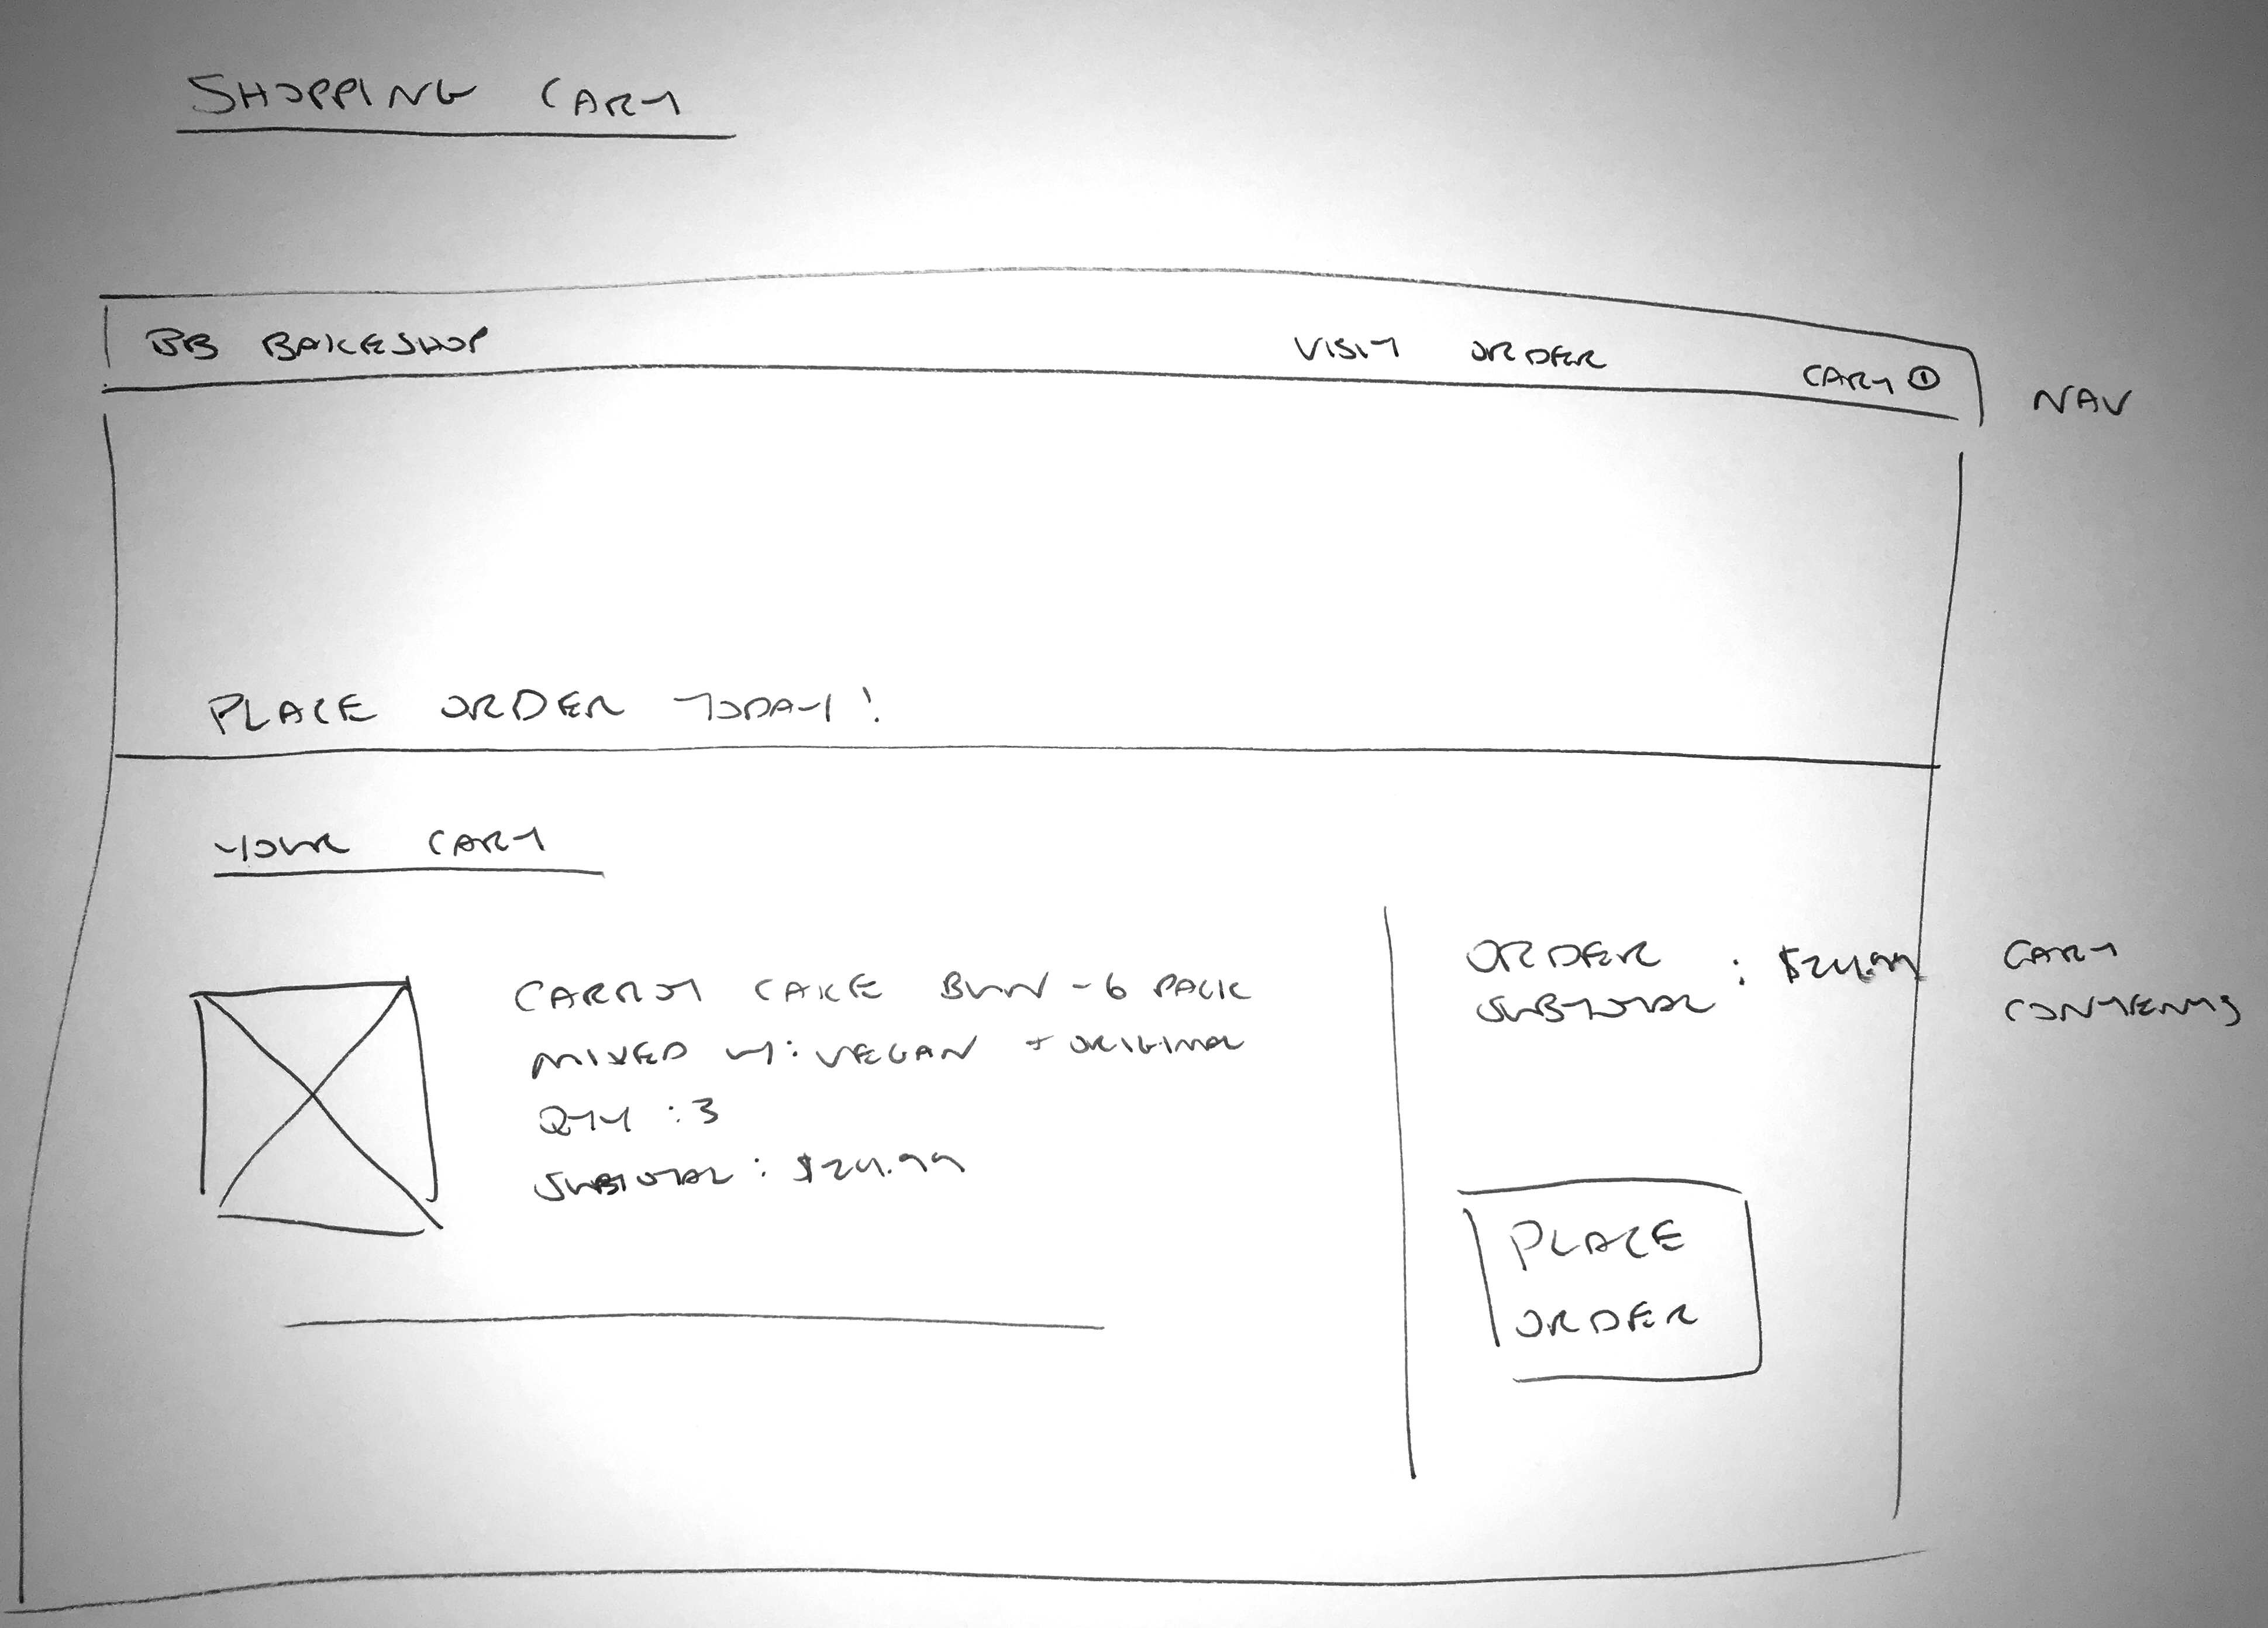 SHOPPING CART
BB BAKESHOP
VISIT ORDER CART 1
NAV
PLACE ORDER TODAY!
YOUR CART
CARROT CAKE BUN - 6 PACK
MIXED W/: VEGAN + ORIGINAL
QTY : 3
SUBTOTAL : $24.99
ORDER
SUBTOTAL : $24.99
PLACE
ORDER
CART
CONTENTS